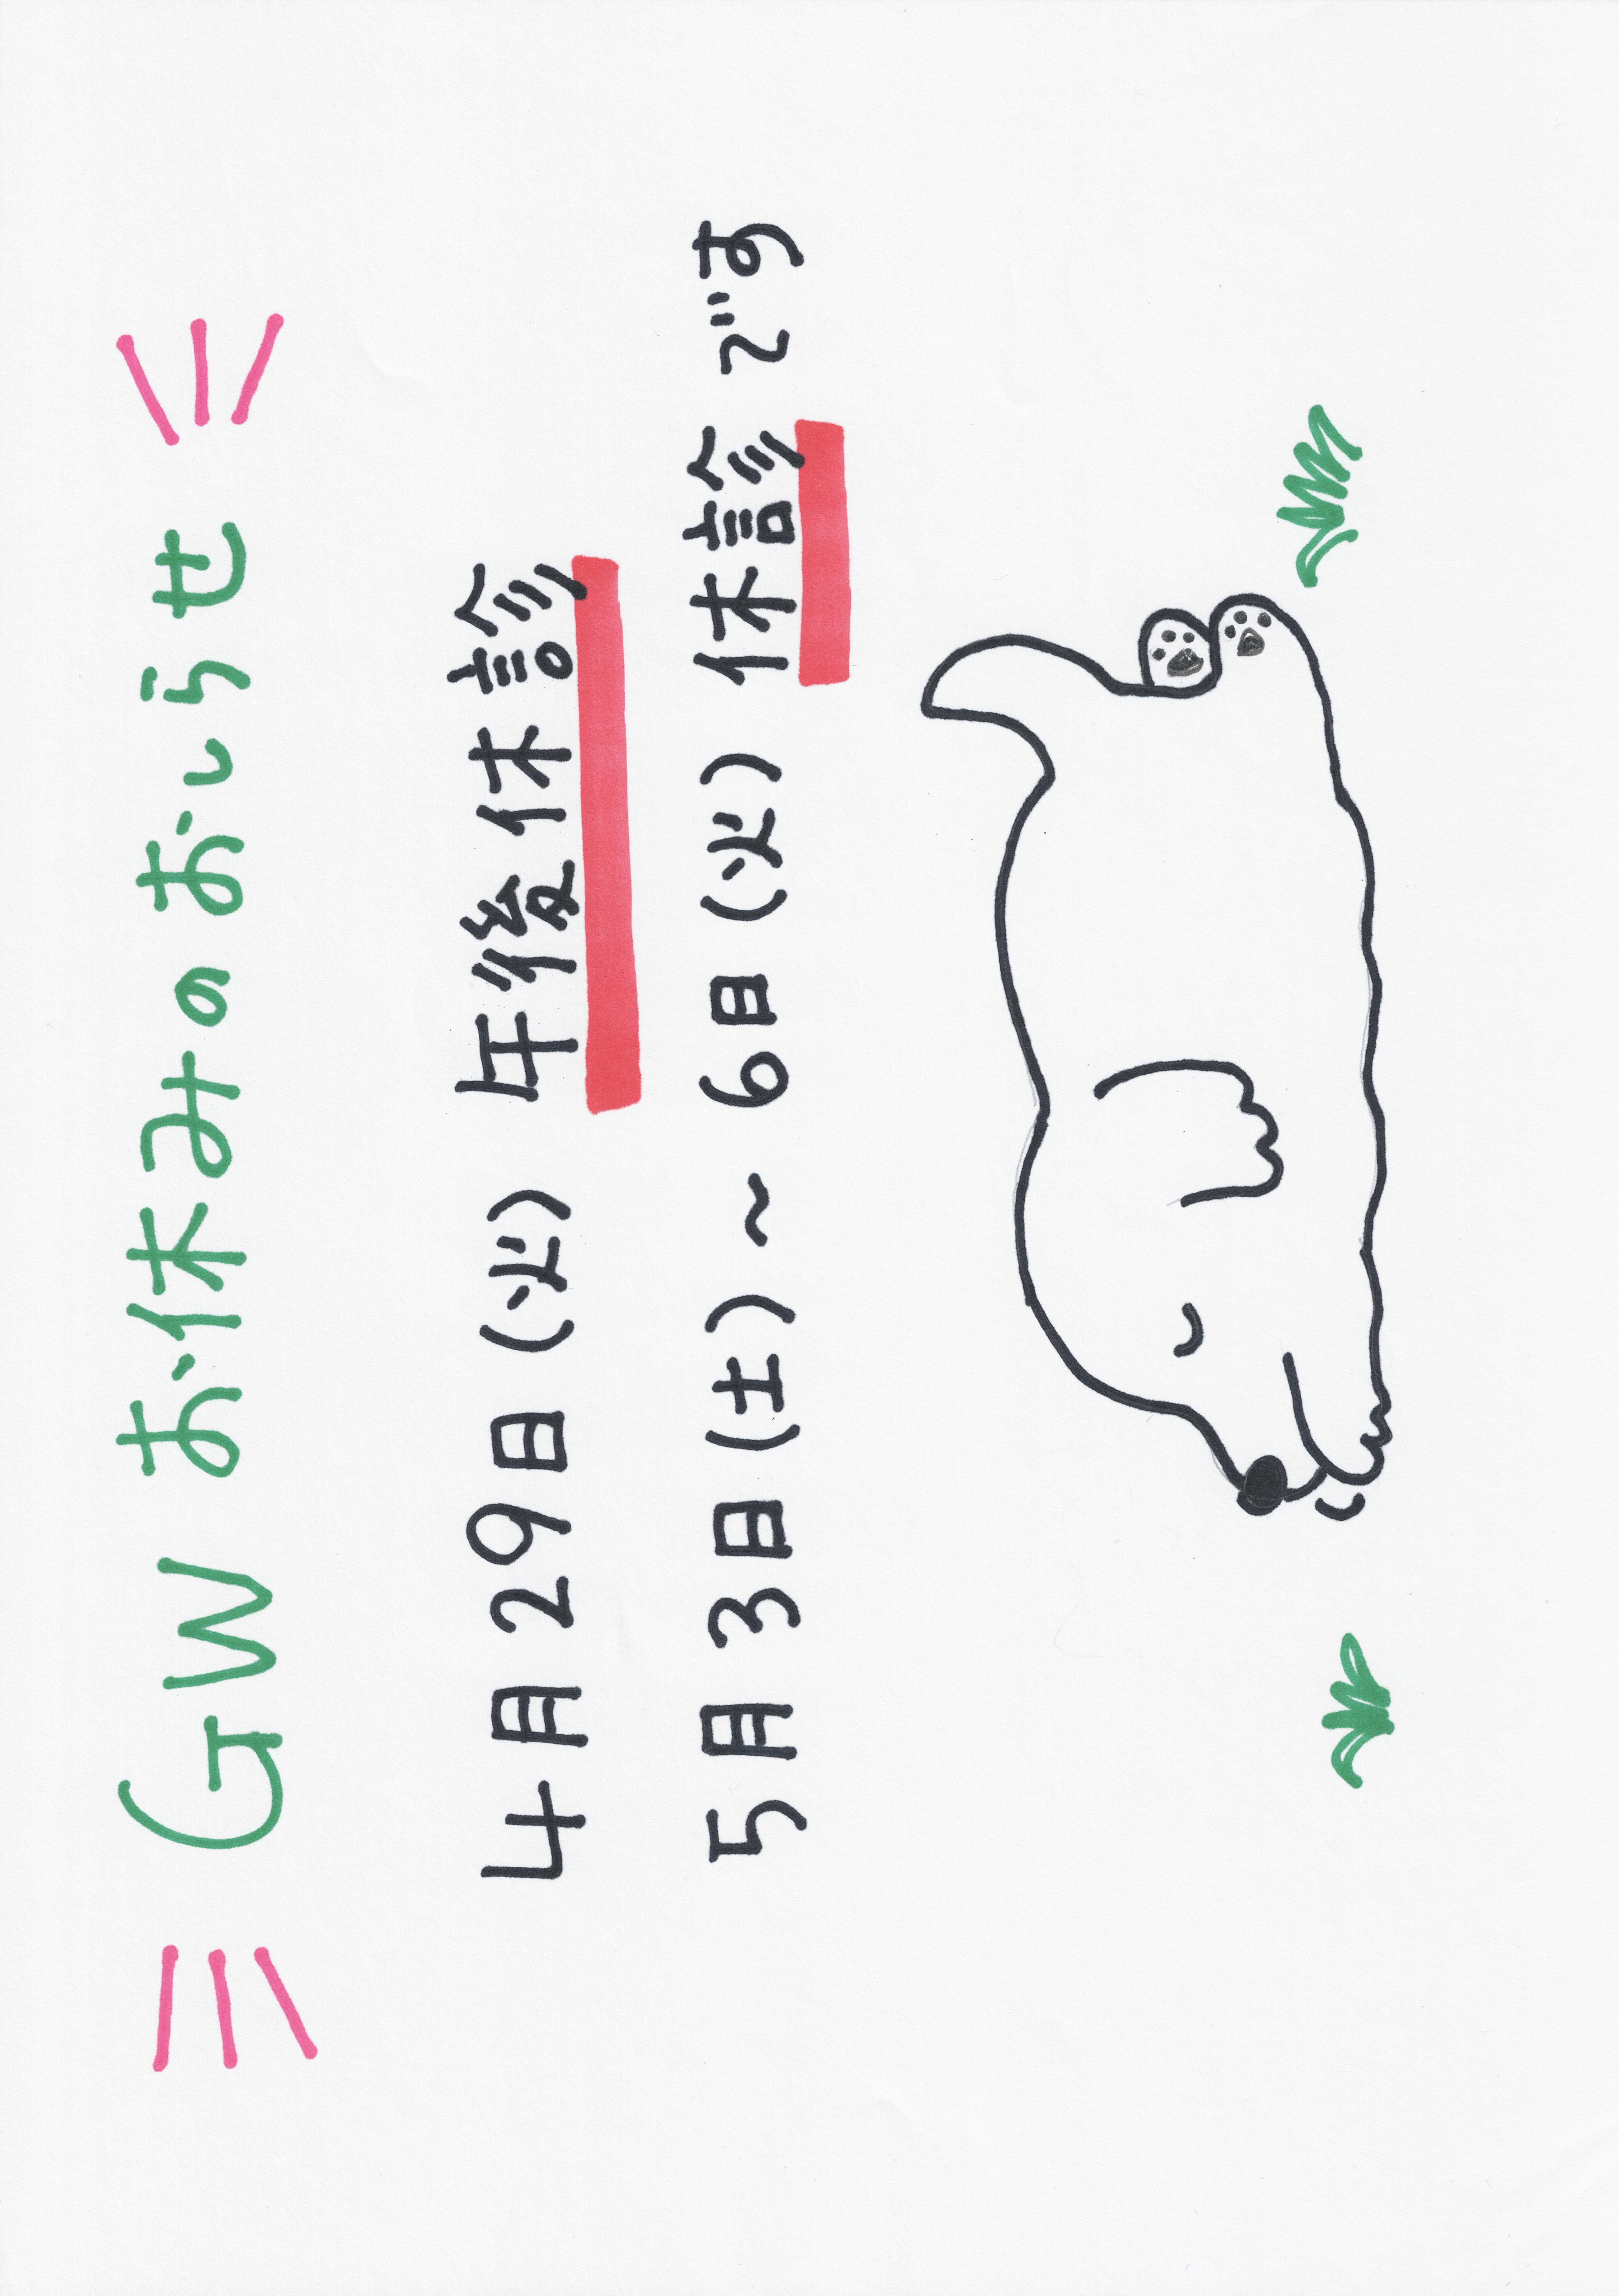 GW お休みのおしらせ
4月29日(火) 午後休診
5月3日(土)~6日(火) 休診です